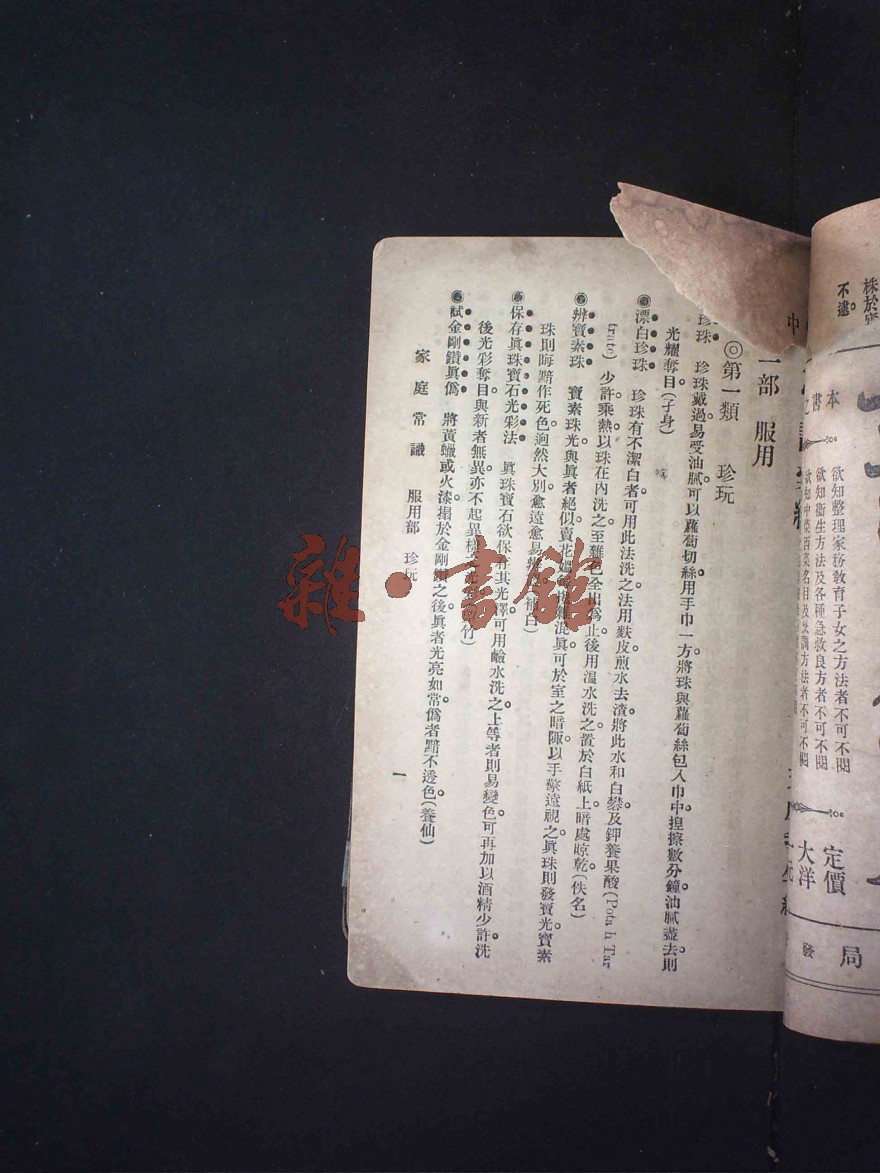 株於
不逮。
本書之
欲知整理家務教育子女之方法者不可不閱
欲知衞生方法及各種急救良方者不可不閱
欲知中菜西菜名目及烹調方法者不可不閱
定價
大洋
局
發
中
部 服用
◎第一類 珍玩
珍珠 珍珠戴過易受油膩可以蘿蔔切絲用手巾一方將珠與蘿蔔絲包入巾中揑擦數分鐘油膩盡去則
光耀奪目。(子身)
漂白珍珠 珍珠有不潔白者可用此法洗之法用麩皮煎水去渣將此水和白礬及鉀養果酸(Pota h Tar
trate)少許乘熱以珠在內洗之至雜色全出為止後用溫水洗之置於白紙上暗處晾乾。(佚名)
辨寶素珠 寶素珠光與眞者絕似賣花媼混眞可於室之暗陬以手擎遠視之眞珠則發寶光寶素
珠則晦黯作死色迥然大別愈遠愈易補白)
保存眞珠寶石光彩法 眞珠寶石欲保存其光澤可用鹼水洗之上等者則易變色可再加以酒精少許洗
後光彩奪目與新者無異亦不起異竹)
試金剛鑽眞僞 將黃蠟或火漆搨於金剛鑽之後眞者光亮如常僞者黯不透色。(養仙)
家庭常識 服用部 珍玩 一
雜·書館